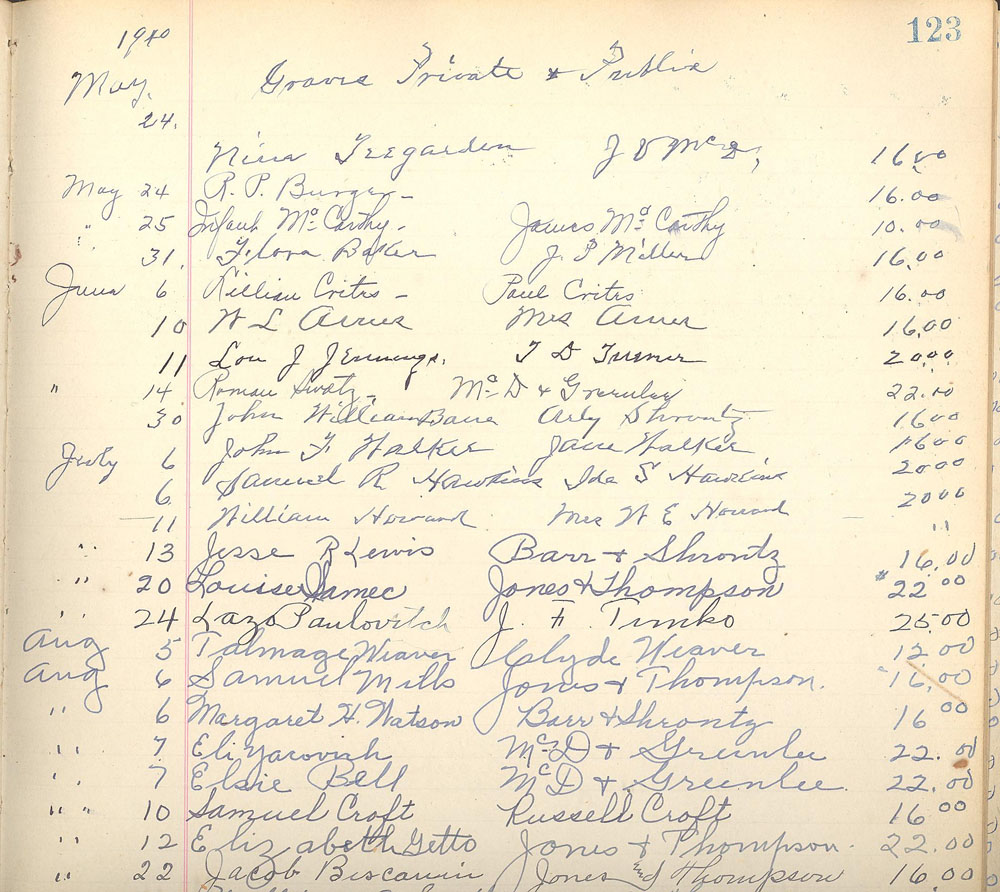 123
1940
May. Graves Private & Public
24.
Nina Teegarden J V McD, 16.00
May 24 R. P. Burger - 16.00
" 25 Infant McCarthy - James McCarthy 10.00
31. Flora Baker J. P Miller 16.00
June 6 Killian Critis - Paul Critis 16.00
10 W L Arner Mrs Arner 16.00
11 Lou J Jennings. T D Turner 20.00
" 14 Roman Swatz - McD & Greenlee 22.00
30 John William Bane Arly Shrontz 16.00
July 6 John F Walker Jane Walker 16.00
6 Samuel R Hawkins Ida S Hawkins 20.00
11 William Howard Mrs W E Howard 20.00
"
" 13 Jesse R Lewis Barr & Shrontz 16.00
" 20 Louisse Samec Jones & Thompson 22.00
" 24 Lazo Paulovitch J. F. Timko 25.00
Aug 5 Talmage Weaver Clyde Weaver 12.00
Aug 6 Samuel Mills Jones & Thompson. 16.00
" 6 Margaret H. Watson Barr & Shrontz 16.00
" 7 Eli Yarovich McD & Greenlee 22.00
" 7 Elsie Bell McD & Greenlee. 22.00
" " 10 Samuel Croft Russell Croft 16.00
" 12 Elizabeth Getto Jones & Thompson. 22.00
" 22 Jacob Biscanin Jones and Thompson 16.00